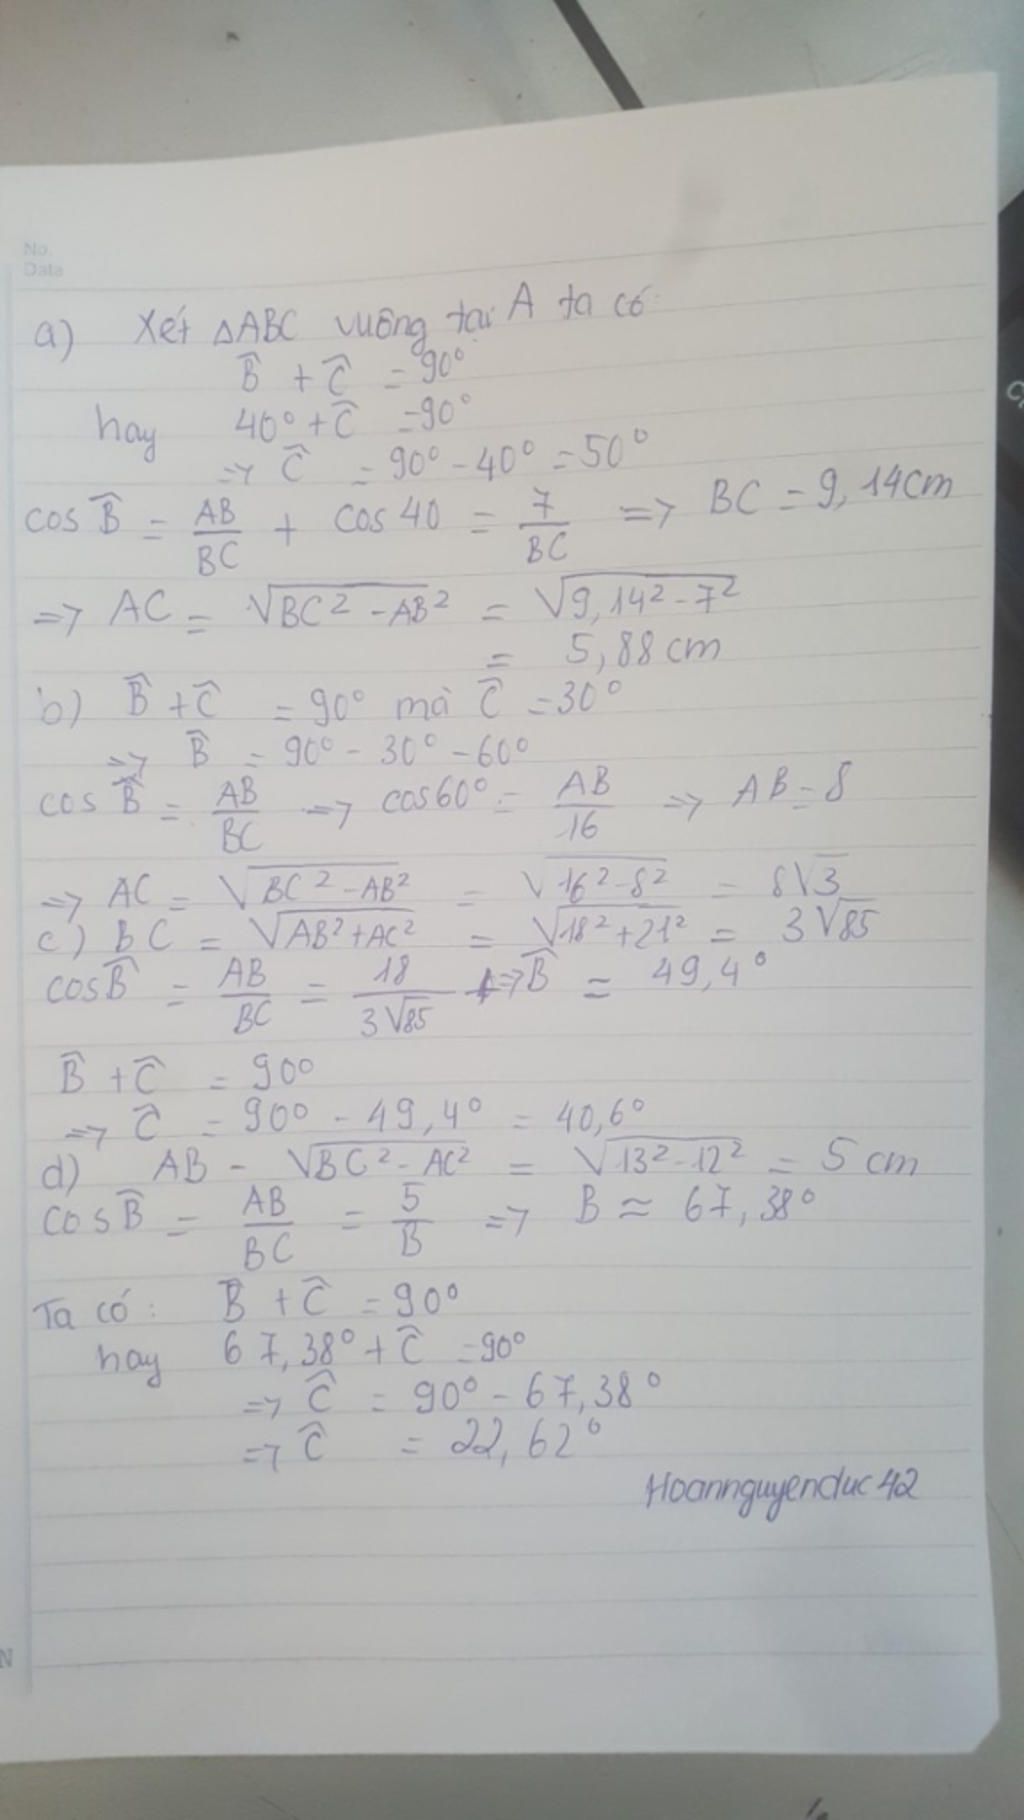 No.
Data
a) Xét △ABC vuông tại A ta có:
B̂ + Ĉ = 90°
hay 40° + Ĉ = 90°
=> Ĉ = 90° - 40° = 50°
cos B̂ = AB/BC + cos 40 = 7/BC => BC = 9,14cm
=> AC = √(BC² - AB²) = √(9,14² - 7²)
= 5,88 cm
b) B̂ + Ĉ = 90° mà Ĉ = 30°
=> B̂ = 90° - 30° - 60°
cos B̂ = AB/BC => cos60° = AB/16 => AB = 8
=> AC = √(BC² - AB²) = √(16² - 8²) = 8√3
c) BC = √(AB² + AC²) = √(18² + 21²) = 3√85
cosB̂ = AB/BC = 18/3√85 => B̂ = 49,4°
B̂ + Ĉ = 90°
=> Ĉ = 90° - 49,4° = 40,6°
d) AB - √(BC² - AC²) = √(13² - 12²) = 5 cm
cosB̂ = AB/BC = 5/B => B ≈ 67,38°
Ta có: B̂ + Ĉ = 90°
hay 67,38° + Ĉ = 90°
=> Ĉ = 90° - 67,38°
=> Ĉ = 22,62°
Hoannguyenduc42
N